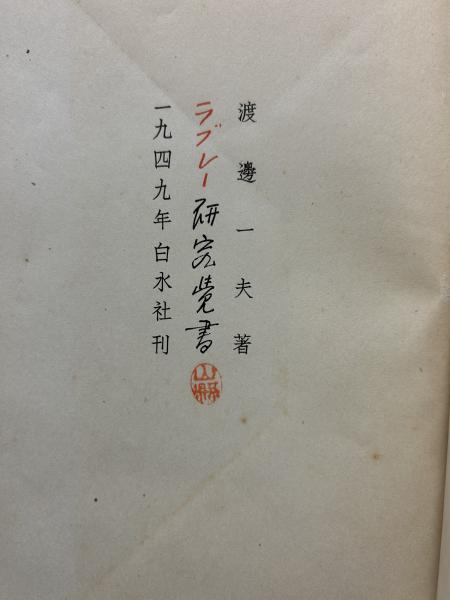 渡邊一夫著
ラブレー研究覚書
一九四九年白水社刊
山縣